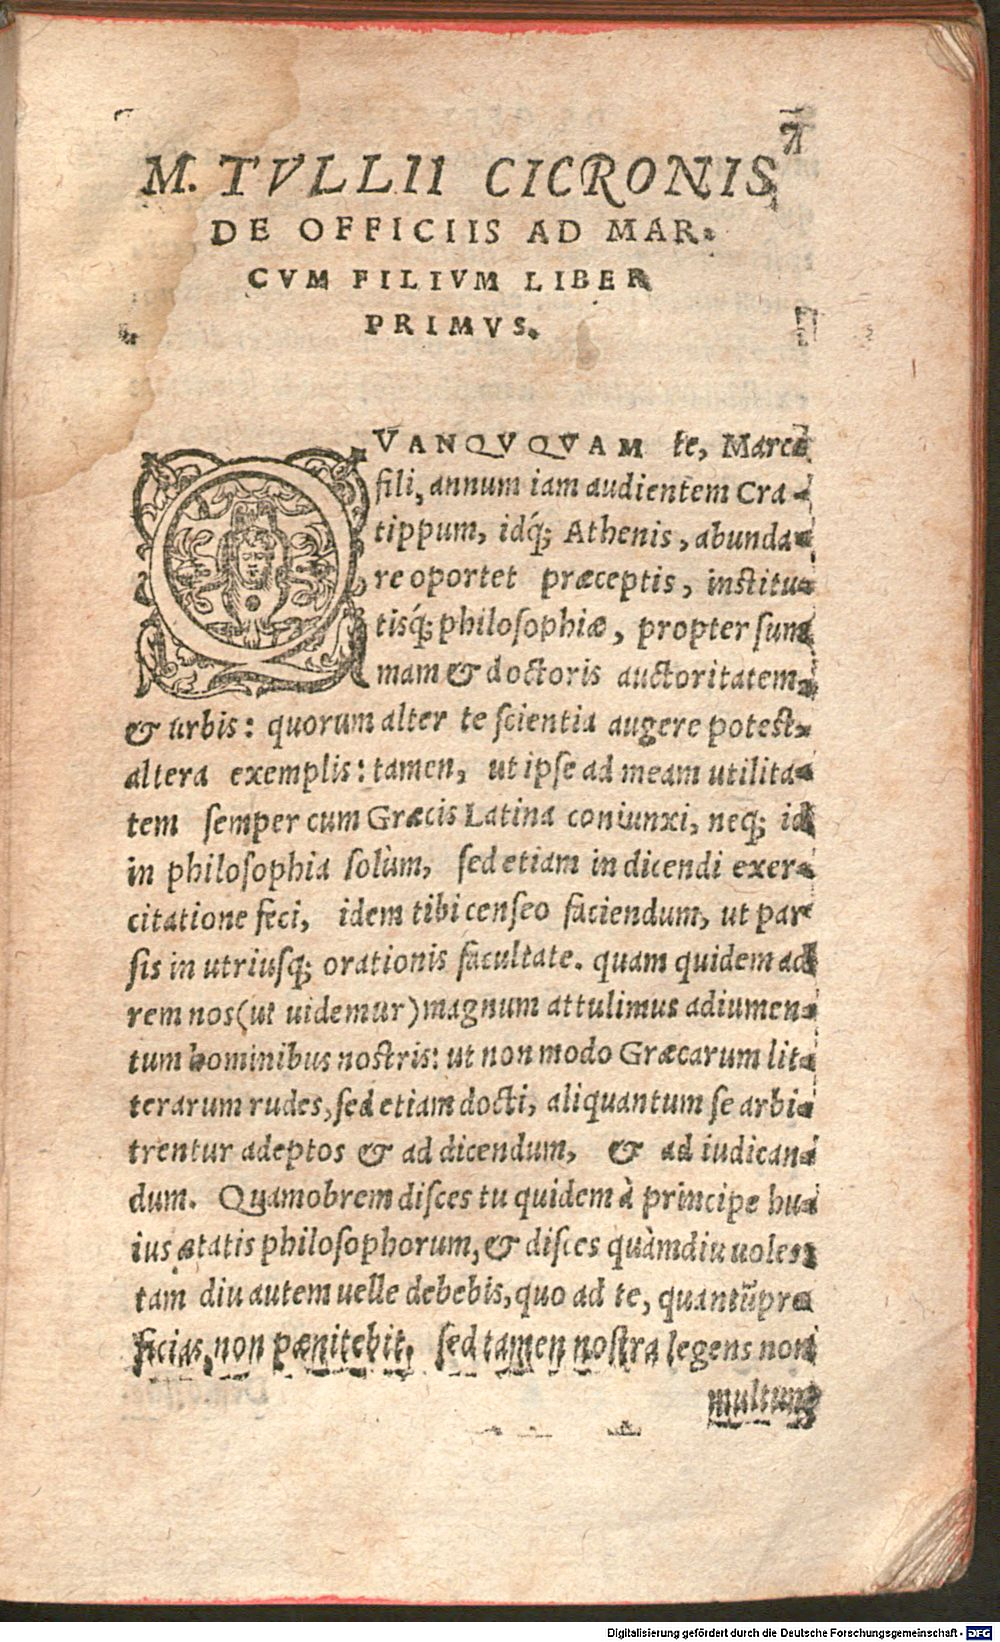 7
M. TVLLII CICRONIS
DE OFFICIIS AD MAR-
CVM FILIVM LIBER
PRIMVS.
QVANQVQVAM te, Marce
fili, annum iam audientem Cra-
tippum, idq́; Athenis, abunda-
re oportet præceptis, institu-
tisq́; philosophiæ, propter sum
mam & doctoris auctoritatem,
& urbis: quorum alter te scientia augere potest,
altera exemplis: tamen, ut ipse ad meam utilita-
tem semper cum Græcis Latina coniunxi, neq; id
in philosophia solùm, sed etiam in dicendi exer-
citatione feci, idem tibi censeo faciendum, ut par
sis in utriusq; orationis facultate. quam quidem ad
rem nos (ut uidemur) magnum attulimus adiumen-
tum hominibus nostris: ut non modo Græcarum lit-
terarum rudes, sed etiam docti, aliquantum se arbi-
trentur adeptos & ad dicendum, & ad iudican-
dum. Quamobrem disces tu quidem à principe hu-
ius ætatis philosophorum, & disces quàmdiu uoles:
tam diu autem uelle debebis, quo ad te, quantũ pro
ficias, non pænitebit. sed tamen nostra legens non
multum
Digitalisierung gefördert durch die Deutsche Forschungsgemeinschaft - DFG